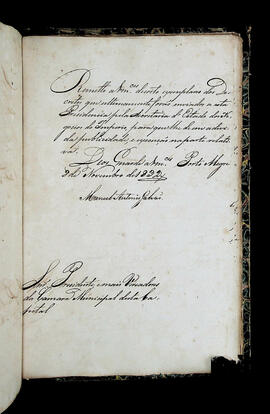 Remetto a Vm.ces dezoito exemplares dos De-
cretos que ultimamente forão enviados a esta
Presidencia pela Secretaria d'Estado dos Ne-
gocios do Imperio, para que lhe dem a devi-
da publicidade, e execução na parte relati-
va.
Deos Guarde a Vm.ces Porto Alegre
8 de Novembro de 1832.
Manoel Antonio Galvão
Snr.es Presidente, e mais Vereadores
da Camara Municipal desta Ca-
pital